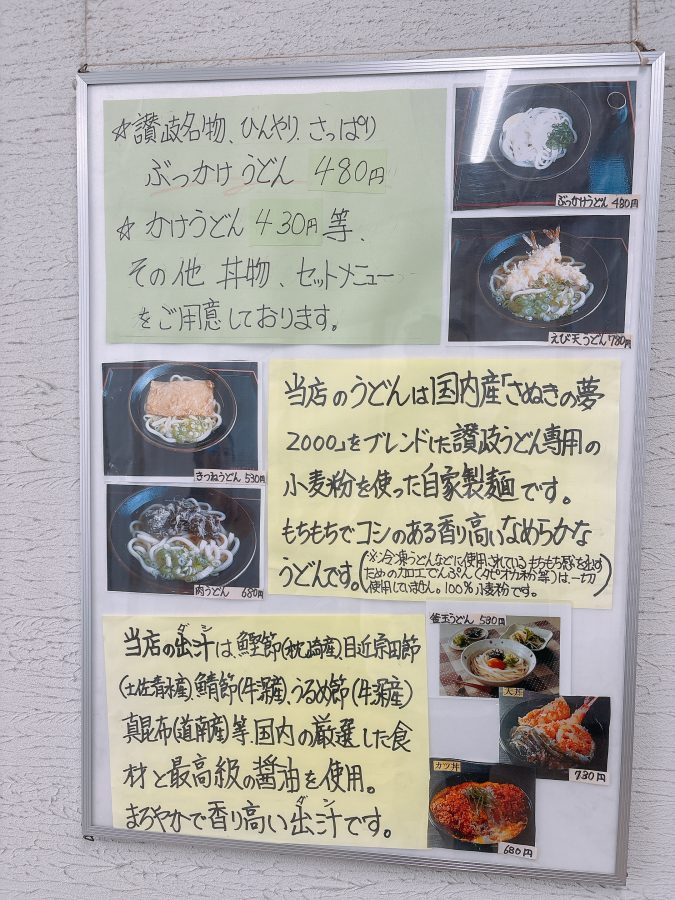 ☆讃岐名物、ひんやり、さっぱり
ぶっかけうどん 480円
☆かけうどん 430円 等、
その他 丼物、セットメニュー
をご用意しております。
ぶっかけうどん 480円
えび天うどん 780円
きつねうどん 530円
肉うどん 680円
当店のうどんは国内産「さぬきの夢
2000」をブレンドした讃岐うどん専用の
小麦粉を使った自家製麺です。
もちもちでコシのある香り高いなめらかな
うどんです。
(※冷凍うどんなどに使用されているもちもち感を出す
ための加工でんぷん(タピオカ粉等)は一切
使用していません。100%小麦粉です。)
当店の出汁は、鰹節(枕崎産)、目近宗田節
ダシ
(土佐清水産)、鯖節(牛深産)、うるめ節(牛深産)
真昆布(道南産)等、国内の厳選した食
材と最高級の醤油を使用。
まろやかで香り高い出汁です。
ダシ
釜玉うどん 530円
天丼
730円
カツ丼
680円